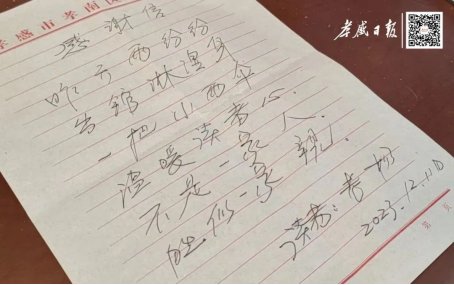 孝感市孝南区
孝感日报
感谢信
昨天雨纷纷
出馆淋湿身
一把小雨伞
温暖读者心.
不是一家人.
胜似一家亲.
读者:
2023.12.10